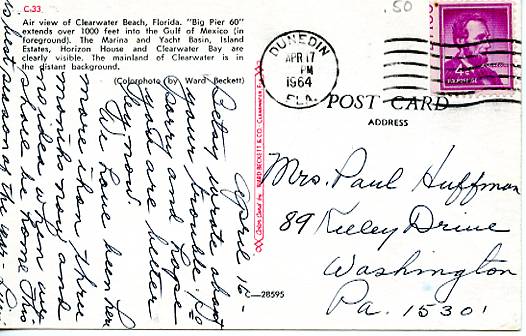 C-33
Air view of Clearwater Beach, Florida. "Big Pier 60"
extends over 1000 feet into the Gulf of Mexico (in
foreground). The Marina and Yacht Basin, Island
Estates, Horizon House and Clearwater Bay are
clearly visible. The mainland of Clearwater is in
the distant background.
(Colorphoto by Ward Beckett)
.50
DUNEDIN
APR 17
PM
1964
FLA.
4¢
U.S. POSTAGE
POST CARD
ADDRESS
Mrs. Paul Huffman
89 Kelley Drive
Washington
Pa. 15301
C—28595
April 16 -
Betsy wrote about
your trouble. So
sorry and hope
you are better
by now.
We have been here
more than three
months now and
when we
shall be home. This
is best season of the year -